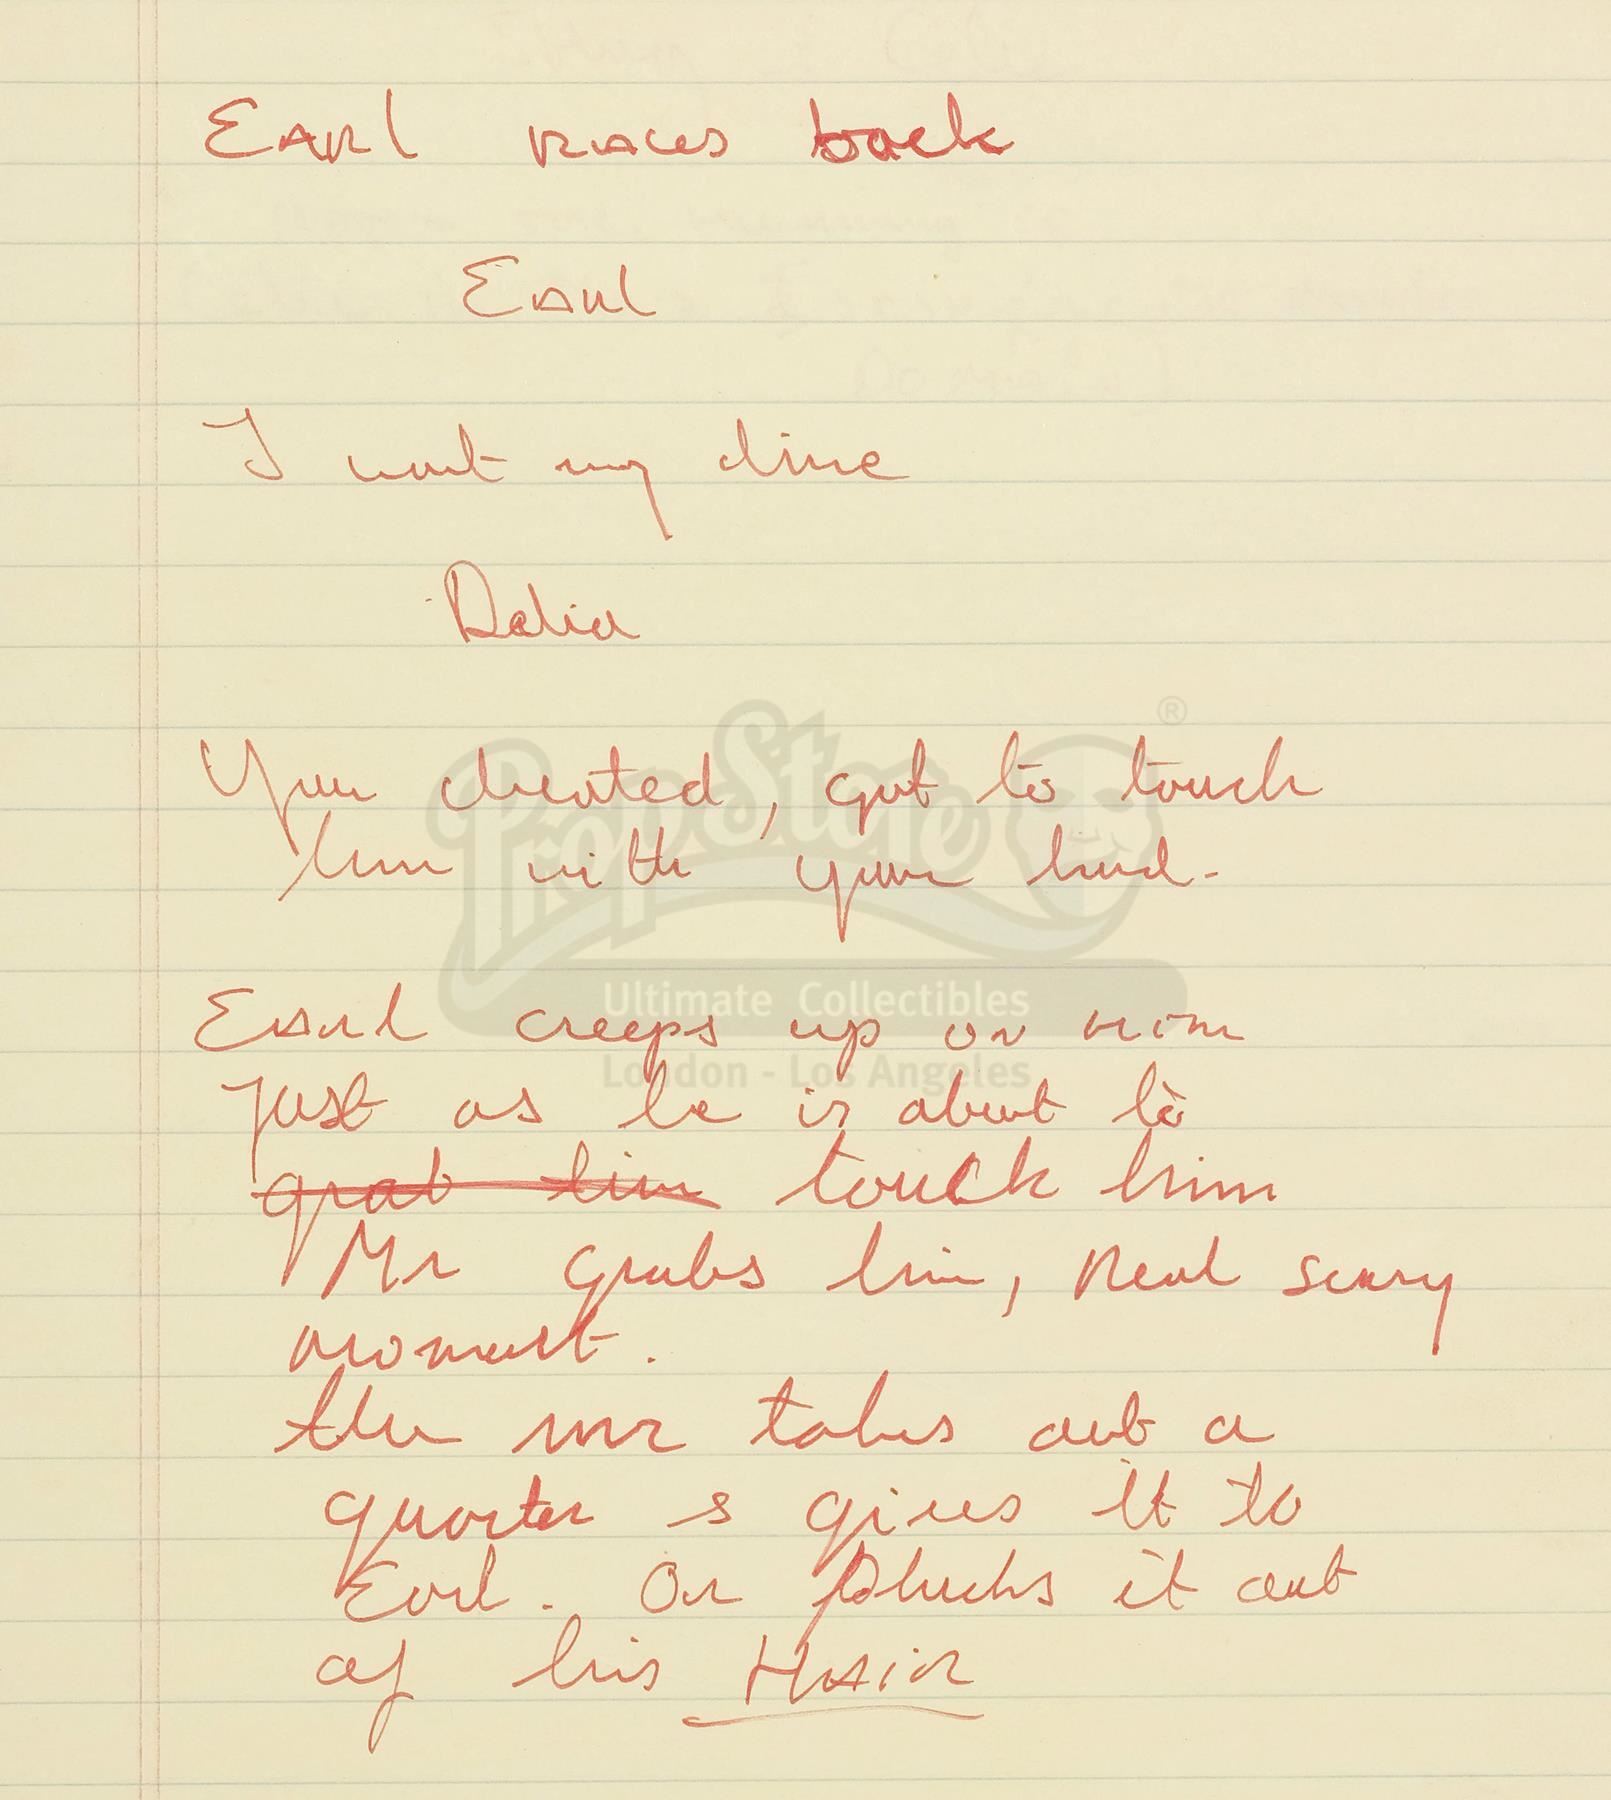 EARL RACES back
EARL
I want my dime
Dalia
You cheated, got to touch
him with your hand.
PropStore ®
Ultimate Collectibles
EARL creeps up on him
London - Los Angeles
Just as he is about to
grab him touch him
Mr Grabs him, Real scary
moment.
the mr takes out a
quarter & gives it to
Earl. Or plucks it out
of his HAIR